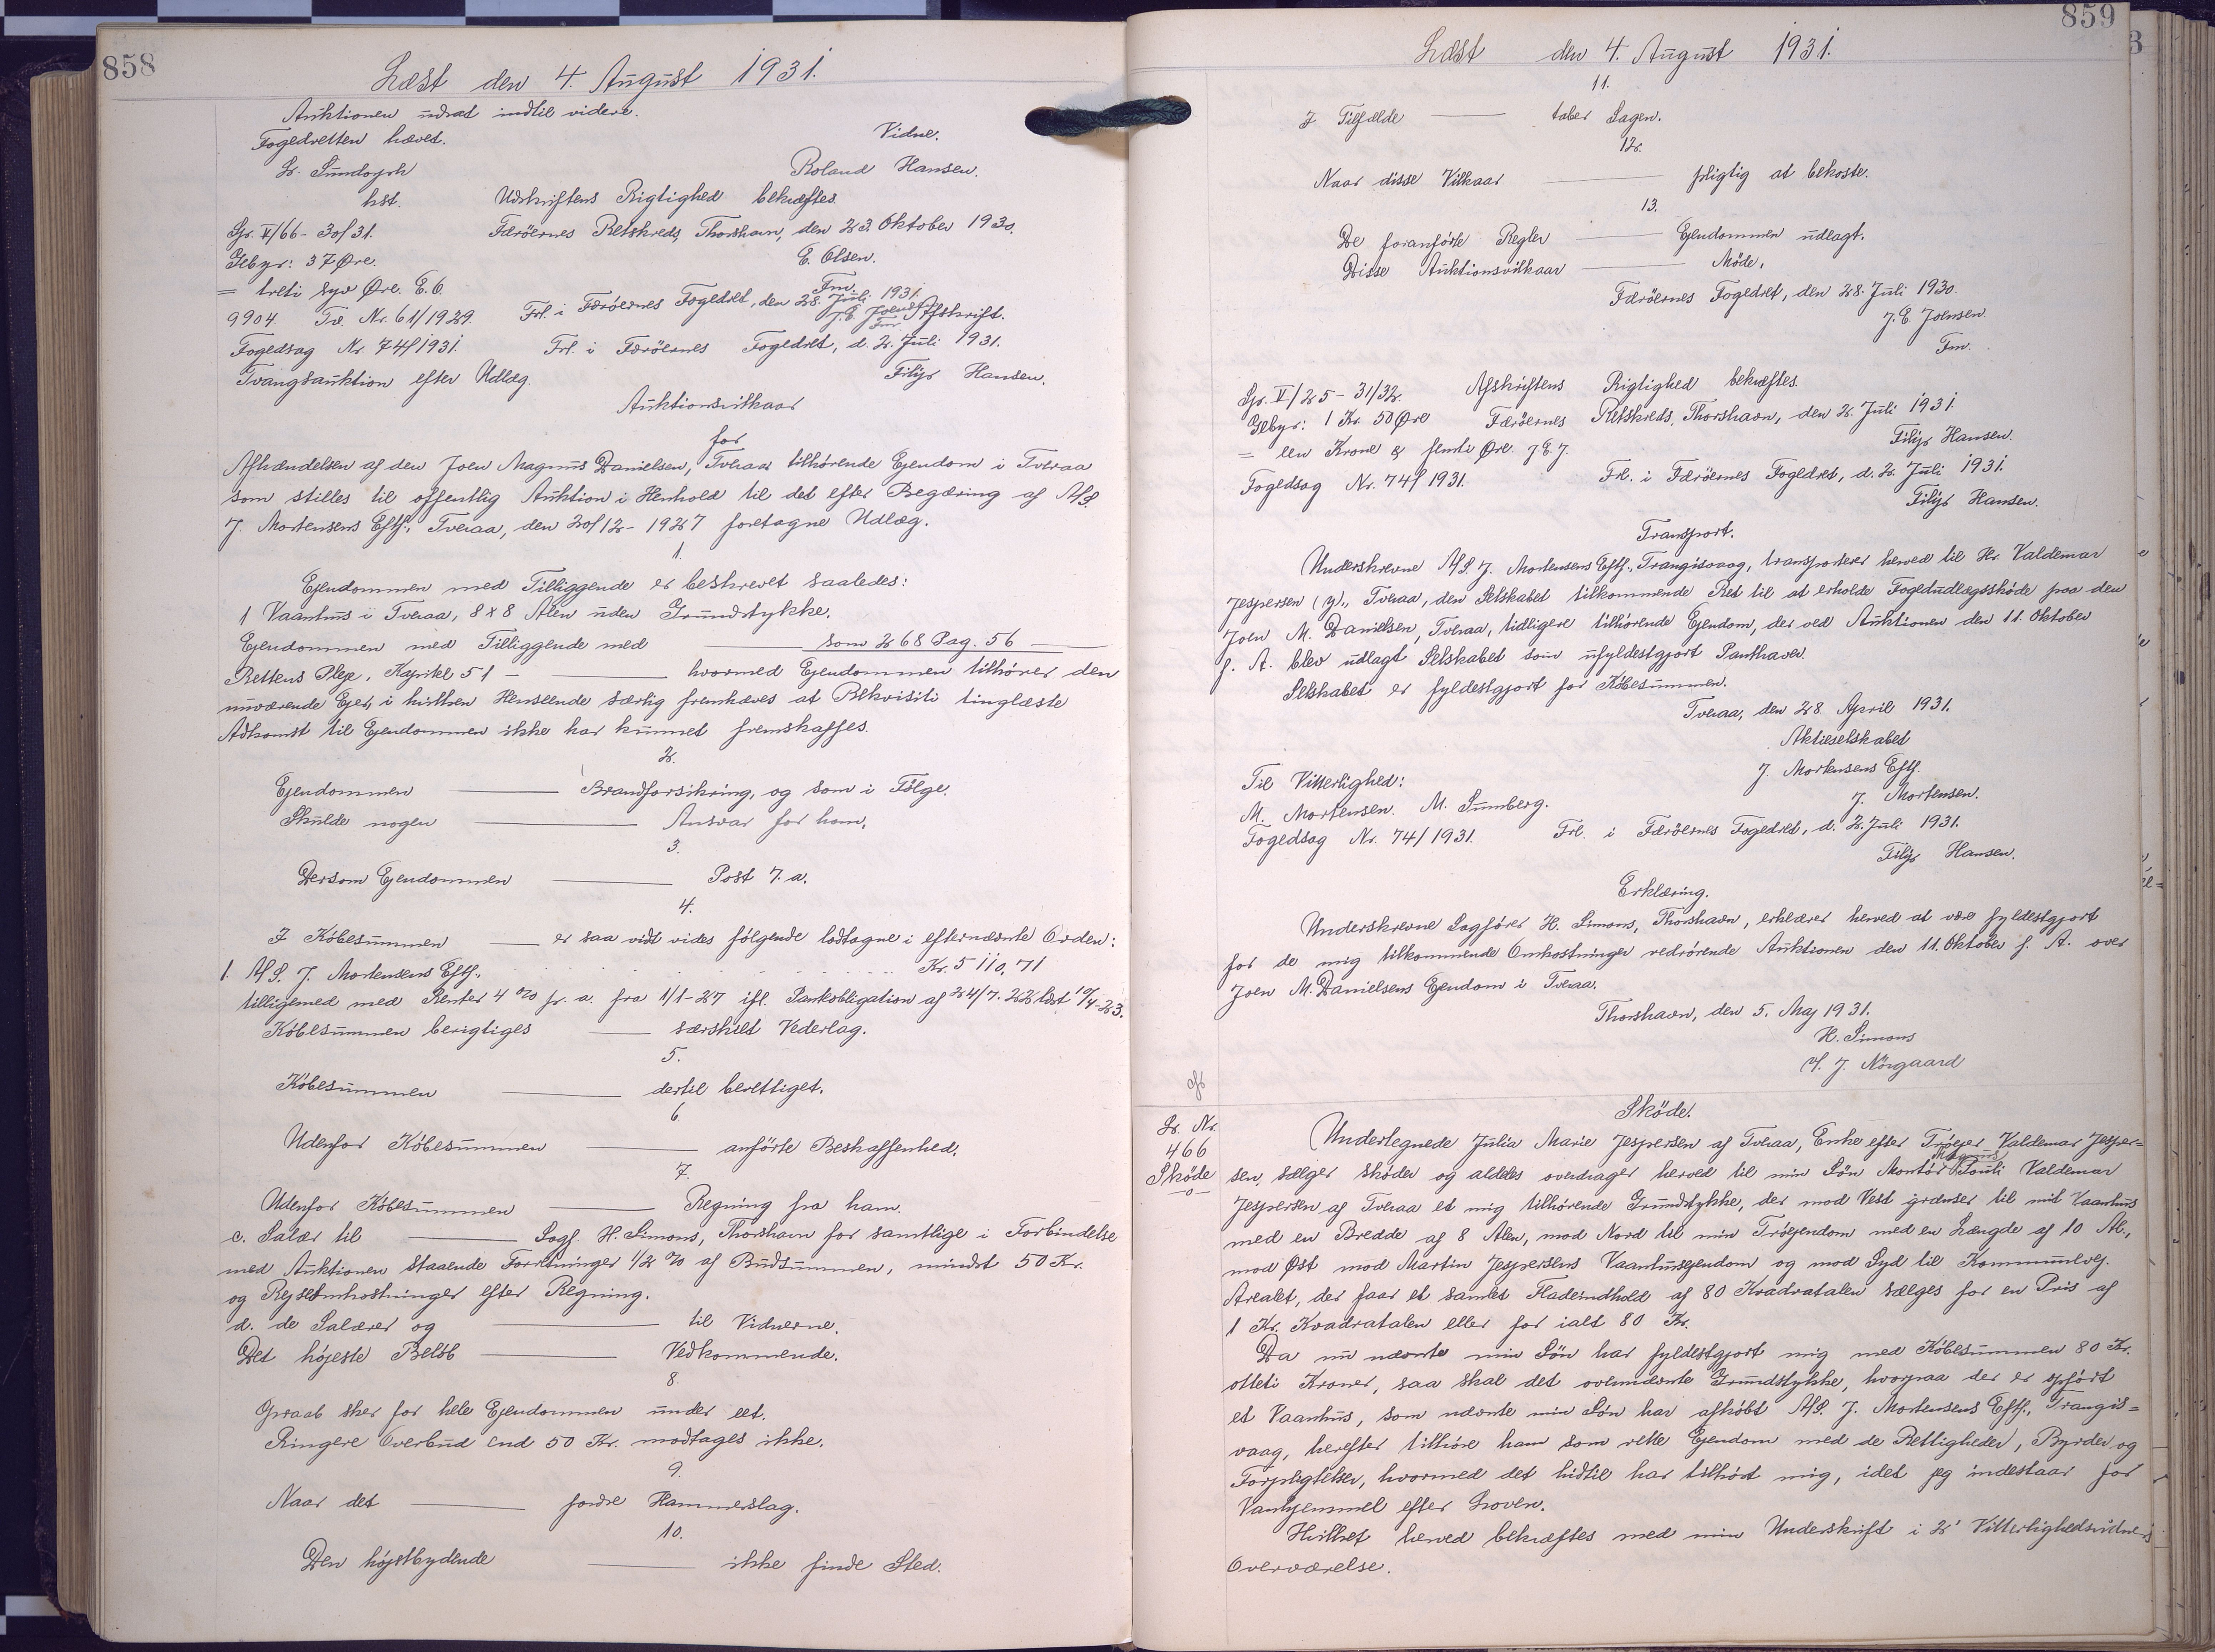 858
Læst den 4. August 1931.
Auktionen udsat indtil videre.
Fogedretten hævet.
Vidne.
Roland Hansen.
hst.
Udskriftens Rigtighed bekræftes.
Gr. V/66 - 30/31.
Færöernes Retskreds, Thorshavn, den 23. Oktober 1930.
Gebyr: 37 Øre.
E. Olsen.
= treti syv Øre. E.O.
Fm.
9904. Tv. Nr. 61/1929.
Frl. i Færöernes Fogedret, den 28. Juli 1931.
J.E. Joensen
Fm.
Afskrift.
Fogedsag Nr. 74/1931.
Frl. i Færöernes Fogedret, d. 2. Juli 1931.
Tvangsauktion efter Udlæg.
Filip Hansen.
Auktionsvilkaar
for
Afhændelsen af den Joen Magnus Danielsen, Tveraa tilhörende Ejendom i Tveraa
som stilles til offentlig Auktion i Henhold til det efter Begæring af A/S.
J. Mortensens Eftf., Tveraa, den 20/12-1927 foretagne Udlæg.
1.
Ejendommen med Tilliggende er beskrevet saaledes:
1 Vaanhus i Tveraa, 8 x 8 Alen uden Grundstykke.
Ejendommen med Tilliggende med ——— som 268 Pag. 56 ———
Rettens Pleje, Kapitel 51 - ——— hvormed Ejendommen tilhörer den
nuværende Ejer, i hvilken Henseende særlig fremhæves at Rekvisiti tinglæste
Adkomst til Ejendommen ikke har kunnet fremskaffes.
2.
Ejendommen ——— Brandforsikring, og som i Fölge.
Skulde nogen ——— Ansvar for ham.
3.
Dersom Ejendommen ——— Post 7. a.
4.
I Köbesummen ——— er saa vidt vides fölgende lodtagne i efternævnte Orden:
1. A/S. J. Mortensens Eftf., Kr. 5110,71
tilligemed med Renter 4 % pr. a. fra 1/1-27 ifl. Pantobligation af 24/7. 22 læst 10/4-23.
Köbesummen berigtiges ——— særskilt Vederlag.
5.
Köbesummen ——— dertil berettiget.
6.
Udenfor Köbesummen ——— anförte Beskaffenhed.
7.
Udenfor Köbesummen ——— Regning fra ham.
c. Salær til ——— Sagf. H. Simons, Thorshavn for samtlige i Forbindelse
med Auktionen staaende Forretninger 1/2 % af Budsummen, mindst 50 Kr.
og Rejseomkostninger efter Regning.
d. de Salærer og ——— til Vidnerne.
Det höjeste Belöb ——— Vedkommende.
8.
Opraab sker for hele Ejendommen under eet.
Ringere Overbud end 50 Kr. modtages ikke.
9.
Naar det ——— fordre Hammerslag.
10.
Den höjstbydende ——— ikke finde Sted.
859
Læst den 4. August 1931.
11.
I Tilfælde ——— taber Sagen.
12.
Naar disse Vilkaar ——— pligtig at bekoste.
13.
De foranförte Regler ——— Ejendommen udlagt.
Disse Auktionsvilkaar ——— Möde.
Færöernes Fogedret, den 28. Juli 1930.
J.E. Joensen.
Fm.
Gr. V/25 - 31/32.
Afskriftens Rigtighed bekræftes.
Gebyr: 1 Kr. 50 Øre
Færöernes Retskreds, Thorshavn, den 2. Juli 1931.
= een Krone & femti Øre. J.E.J.
Filip Hansen.
Fogedsag Nr. 74/1931.
Frl. i Færöernes Fogedret, d. 2. Juli 1931.
Filip Hansen.
Transport.
Underskrevne A/S. J. Mortensens Eftf., Trangisvaag, transporterer herved til Hr. Valdemar
Jespersen (y)., Tveraa, den Selskabet tilkommende Ret til at erholde Fogedudlægsskøde paa den
Joen M. Danielsen, Tveraa, tidligere tilhörende Ejendom, der ved Auktionen den 11. Oktober
f. A. blev udlagt Selskabet som ufyldestgjort Panthaver.
Selskabet er fyldestgjort for Köbesummen.
Tveraa, den 28. April 1931.
Aktieselskabet
J. Mortensens Eftf.
J. Mortensen.
Til Vitterlighed:
M. Mortensen. M. Sumberg.
Fogedsag Nr. 74/1931.
Frl. i Færöernes Fogedret, d. 2. Juli 1931.
Filip Hansen.
Erklæring.
Underskrevne Sagförer H. Simons, Thorshavn, erklærer herved at være fyldestgjort
for de mig tilkommende Omkostninger vedrörende Auktionen den 11. Oktober f. A. over
Joen M. Danielsens Ejendom i Tveraa.
Thorshavn, den 5. Maj 1931.
H. Simons
J. Nörgaard
Sköde.
Lr. Nr.
466
Sköde
Undertegnede Julia Marie Jespersen af Tveraa, Enke efter Tröejer Valdemar Jesper=
sen, sælger sköder og aldeles overdrager herved til min Sön Montör Magnus Pouli Valdemar
Jespersen af Tveraa et mig tilhörende Grundstykke, der mod Vest grænser til mit Vaanhus
med en Bredde af 8 Alen, mod Nord til min Tröejendom med en Længde af 10 Al.,
mod Øst mod Martin Jespersens Vaanhusejendom og mod Syd til Kommunevej.
Arealet, der faar et samlet Fladeindhold af 80 Kvadratalen sælges for en Pris af
1 Kr. Kvadratalen eller for ialt 80 Kr.
Da nu nævnte min Sön har fyldestgjort mig med Köbesummen 80 Kr.
otteti Kroner, saa skal det ovennævnte Grundstykke, hvorpaa der er opfört
et Vaanhus, som nævnte min Sön har afköbt A/S. J. Mortensens Eftf., Trangis=
vaag, herefter tilhöre ham som rette Ejendom med de Rettigheder, Byrder og
Forpligtelser, hvormed det hidtil har tilhört mig, idet jeg indestaar for
Vanhjemmel efter Loven.
Hvilket herved bekræftes med min Underskrift i 2' Vitterlighedsvidners
Overværelse.